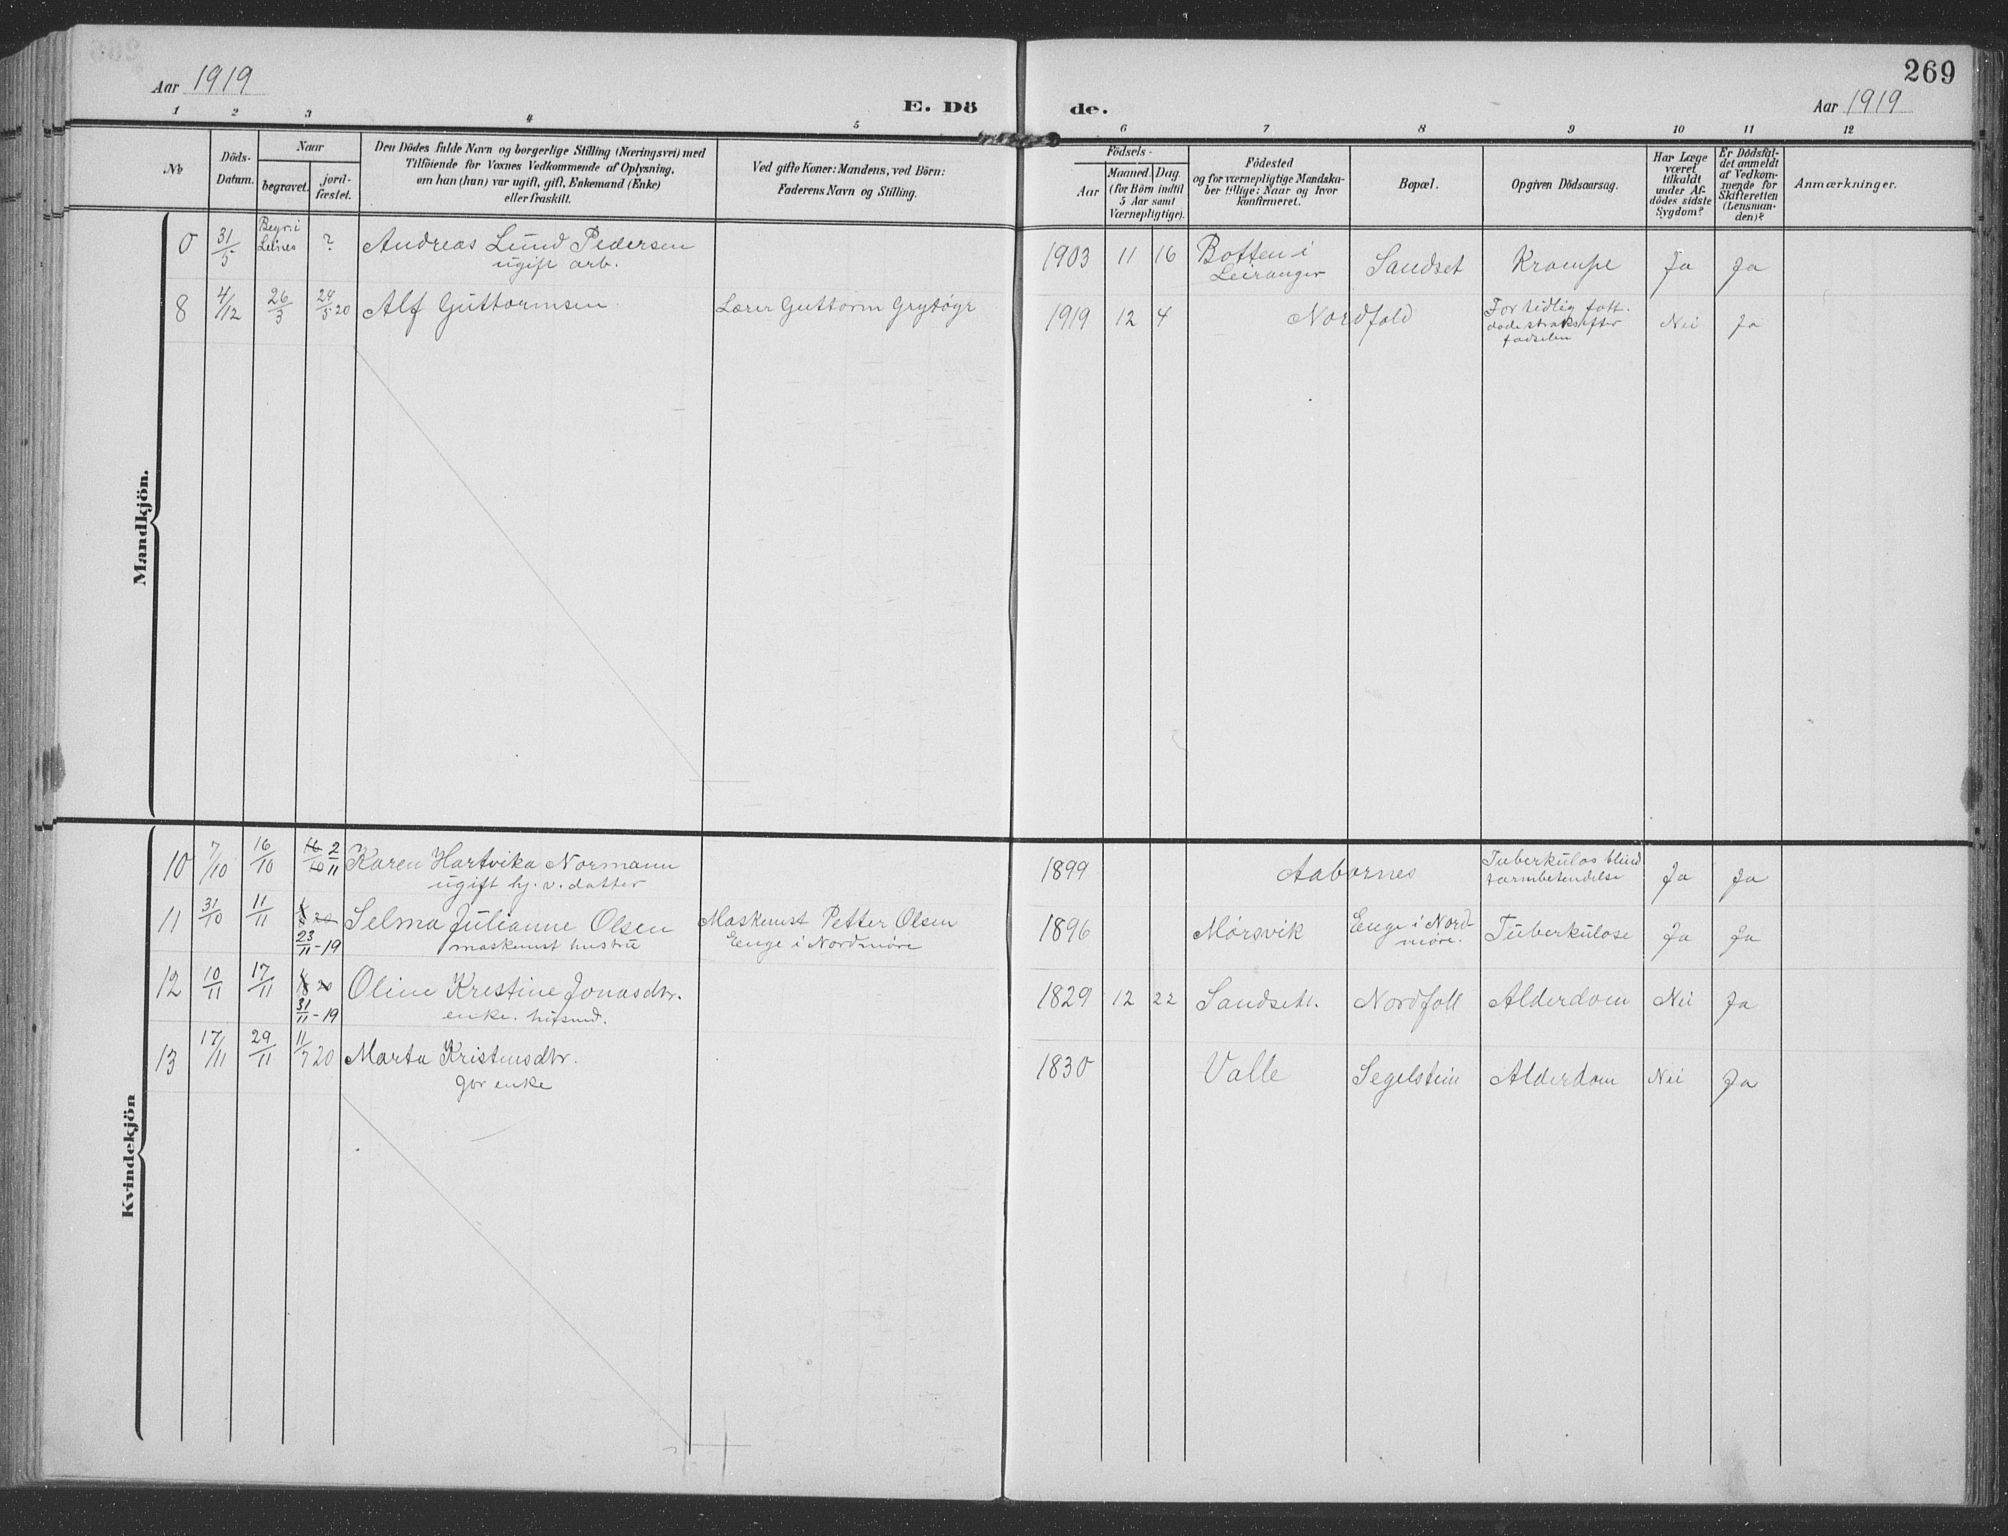 269
Aar 1919
E. Dö de.
Aar 1919
1 2 3 4 5 6 7 8 9 10 11 12
No
Döds-
Datum.
Naar
begravet.
jord-
fæstet.
Den Dödes fulde Navn og borgerlige Stilling (Næringsvei) med
Tilföiende for Voxnes Vedkommende af Oplysning,
om han (hun) var ugift, gift, Enkemand (Enke)
eller fraskilt.
Ved gifte Koner: Mandens, ved Börn:
Faderens Navn og Stilling.
Födsels-
Aar
Maaned. Dag
(for Börn indtil
5 Aar samt
Værnepligtige).
Födested
og for værnepligtige Mandska-
ber tillige: Naar og hvor
konfirmeret.
Bopæl.
Opgiven Dödsaarsag.
Har Læge
været
tilkaldt
under Af-
dödes sidste
Sygdom?
Er Dödsfal-
det anmeldt
af Vedkom-
mende for
Skifteretten
(Lensman-
den)?
Anmærkninger.
Mandkjön.
0 31/5 Begr. i Leines ? Andreas Lund Pedersen 1903 11 16 Botten i Sandset Krampe Ja Ja
ugift arb. Leiranger
8 4/12 26/3 24/5 20 Alf Guttormsen Lærer Guttorm Grytøyr 1919 12 4 Nordfold For tidlig født. Nei Ja
døde straks efter
fødselen
Kvindekjön
10 7/10 16/10 16/10 2/11 Karen Hartvika Normann 1899 Aabornes Tuberkuløs blind Ja Ja
ugift hj. v. datter tarmbetendelse
11 31/10 11/11 20 Selma Julianne Olsen Maskenist Petter Olsen 1896 Mørsvik Enge i Nord- Tuberkulose Ja Ja
23/11-19 maskenist hustru Enge i Nordmøre møre.
12 10/11 17/11 20 Oline Kristine Jonasdtr. 1829 12 22 Sandsetl. Nordfold Alderdom Nei Ja
31/11-19 enke.
13 17/11 29/11 11/7 20 Marta Kristensdtr. 1830 Valle Segelstein Alderdom Nei Ja
gbr enke